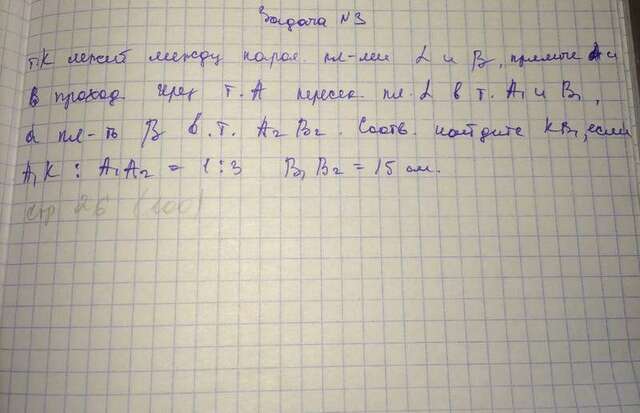 Задача №3
т.К лежит между парал. пл-ми α и β, прямые а и
в проход через т. А пересек. пл. α в т. А₁ и В₁,
а пл-ть β в. т. А₂ В₂. Соотв. найдите КВ₁, если
А₁К : А₁А₂ = 1 : 3 В₁В₂ = 15 см.
стр 26 (100)